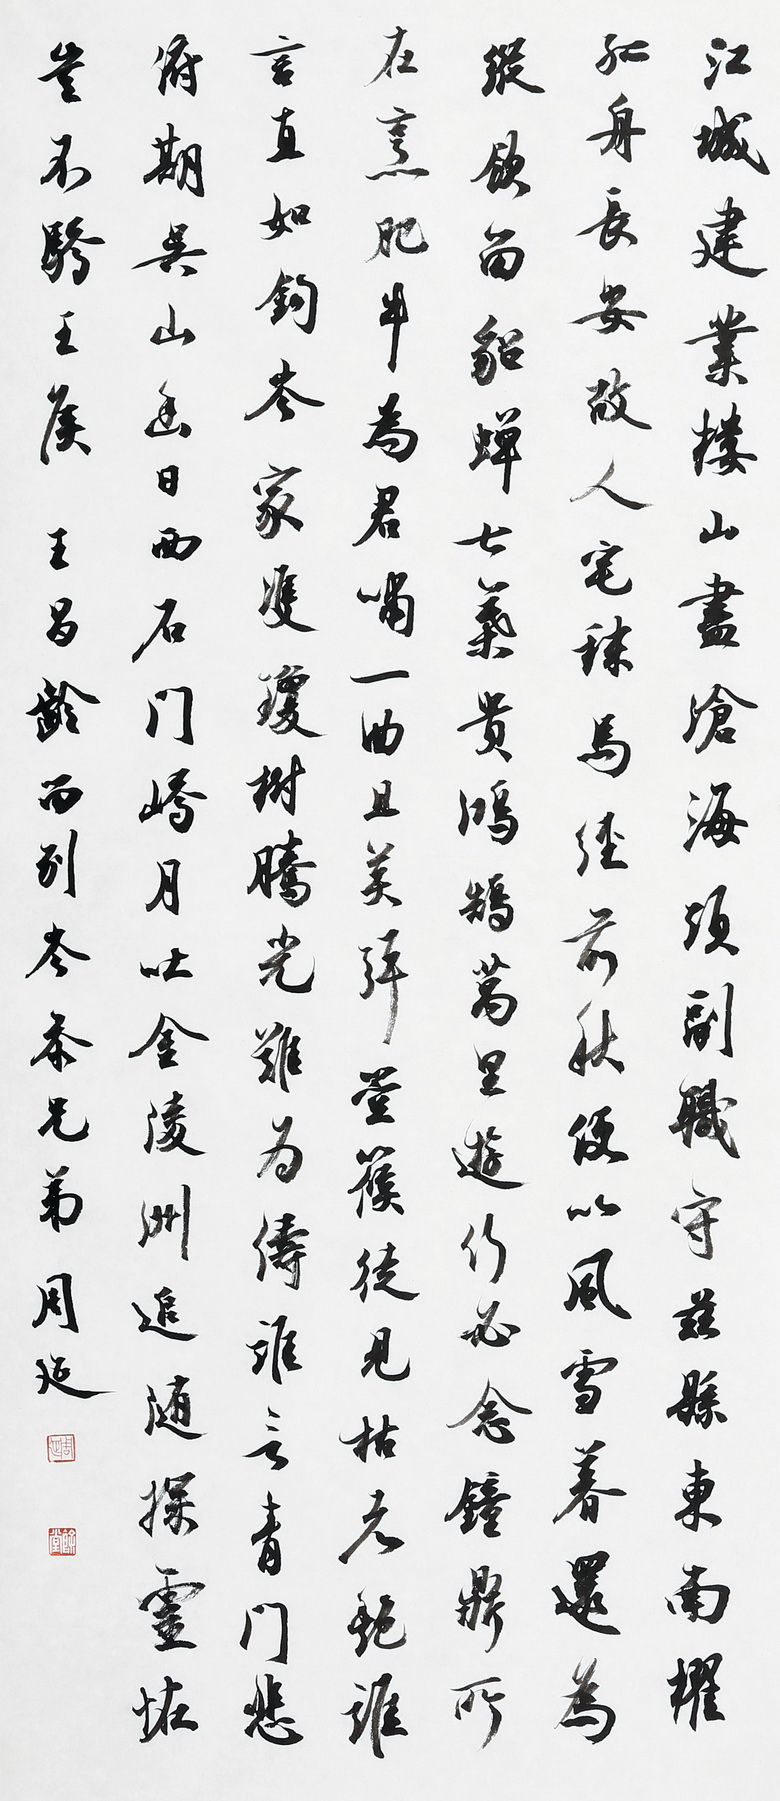 江城建業樓山盡滄海頭副職守茲縣東南櫂
孤舟長安故人宅秣馬經前秋便以風雪暮還為
縱飲留貂蟬七葉貴鴻鵠萬里遊何必念鐘鼎所
在烹肥牛為君嘯一曲且莫彈箜篌徒見枯老艷誰
言直如鉤岑家雙瓊樹騰光難為儔誰言青門悲
俯期吳山幽日西石門嶠月吐金陵洲追隨探靈怪
豈不驕王侯 王昌齡留別岑參兄弟 周延
周延
餘堂